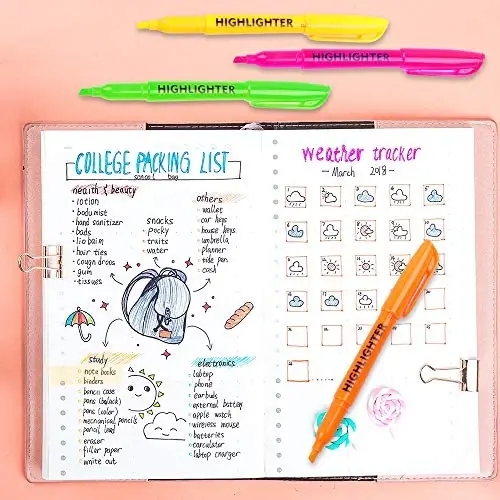 HIGHLIGHTER
HIGHLIGHTER
HIGHLIGHTER
COLLEGE PACKING LIST
school bag
health & beauty
lotion
body mist
hand sanitizer
pads
lip balm
hair ties
cough drops
gum
tissues
snacks
pocky
fruits
water
others
wallet
car keys
house keys
umbrella
planner
tide pen
cash
study
note books
binders
pencil case
pens (black)
pens (color)
mechanical pencils
pencil lead
eraser
filler paper
white out
electronics
laptop
phone
earbuds
external battery
apple watch
wireless mouse
batteries
carculator
labtop charger
weather tracker
- March 2018 -
HIGHLIGHTER